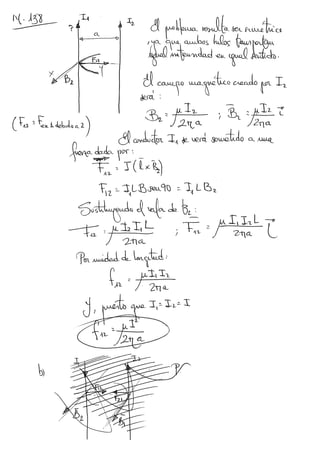 N. 138
I₁ I₂
a
F₁₂
x y
B₂
(F₁₂ = F en 1 debida a 2)
El problema resulta ser simétrico
ya que ambos hilos transportan
igual intensidad en igual sentido.
El campo magnético creado por I₂
será:
B₂ = μ I₂ / 2πa ; B̄₂ = μ I₂ / 2πa i⃗
El conductor I₁ se verá sometido a una
fuerza dada por:
F̄₁₂ = I (l̄ × B̄₂)
F₁₂ = I₁ L B₂ sen 90 = I₁ L B₂
Sustituyendo el valor de B₂:
F₁₂ = μ I₂ I₁ L / 2πa ; F̄₁₂ = μ I₁ I₂ L / 2πa i⃗
Por unidad de longitud:
f₁₂ = μ I₁ I₂ / 2πa
y, puesto que I₁ = I₂ = I
f₁₂ = μ I² / 2πa
b) I₁ I₂ P
F₁₂ F₂₁
B̄₂ B̄₁